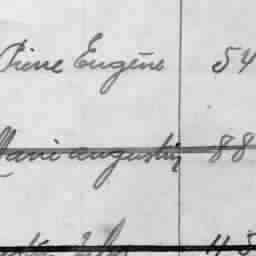 Pierre Eugène 54
Marie augustin 88